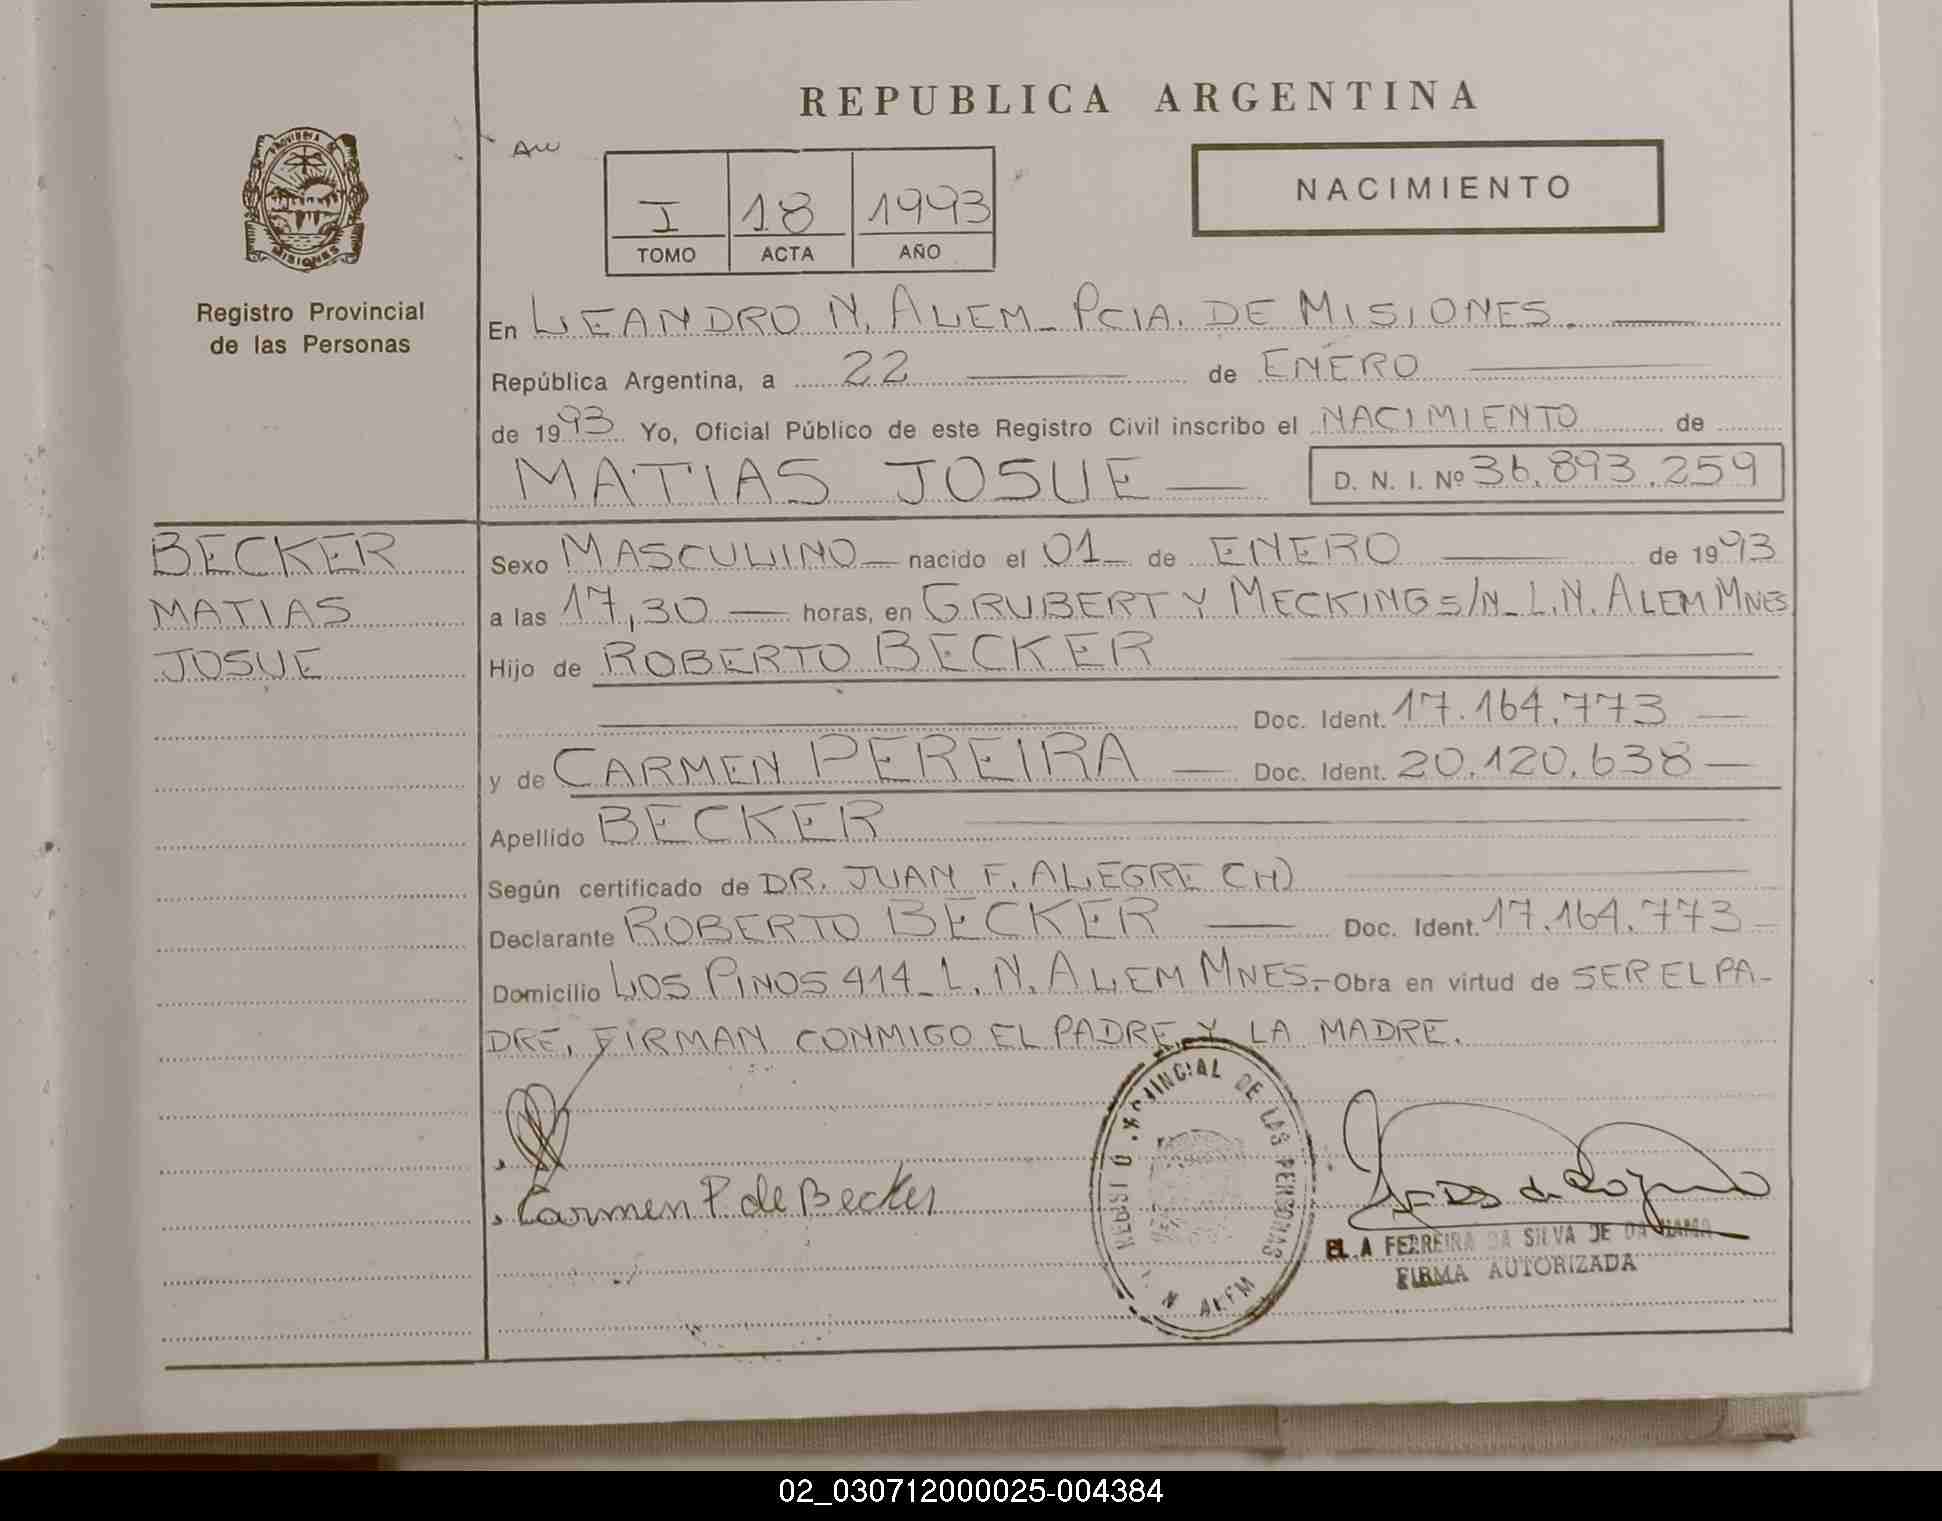 REPUBLICA ARGENTINA
PROVINCIA DE
MISIONES
Registro Provincial
de las Personas
I 18 1993
TOMO ACTA AÑO
NACIMIENTO
En LEANDRO N. ALEM - PCIA. DE MISIONES.
República Argentina, a 22 de ENERO
de 1993 Yo, Oficial Público de este Registro Civil inscribo el NACIMIENTO de
MATIAS JOSUE D. N. I. Nº 36.893.259
BECKER
MATIAS
JOSUE
Sexo MASCULINO nacido el 01 de ENERO de 1993
a las 17,30 horas, en GRUBERT Y MECKING S/N - L.N. ALEM MNES
Hijo de ROBERTO BECKER
Doc. Ident. 17.164.773
y de CARMEN PEREIRA Doc. Ident. 20.120.638
Apellido BECKER
Según certificado de DR. JUAN F. ALEGRE (H)
Declarante ROBERTO BECKER Doc. Ident. 17.164.773
Domicilio LOS PINOS 414 - L.N. ALEM MNES.- Obra en virtud de SER EL PA-
DRE, FIRMAN CONMIGO EL PADRE Y LA MADRE.
Carmen P. de Becker
PROVINCIAL DE LAS PERSONAS
N ALEM
FERREIRA DA SILVA DE
FIRMA AUTORIZADA
02_030712000025-004384